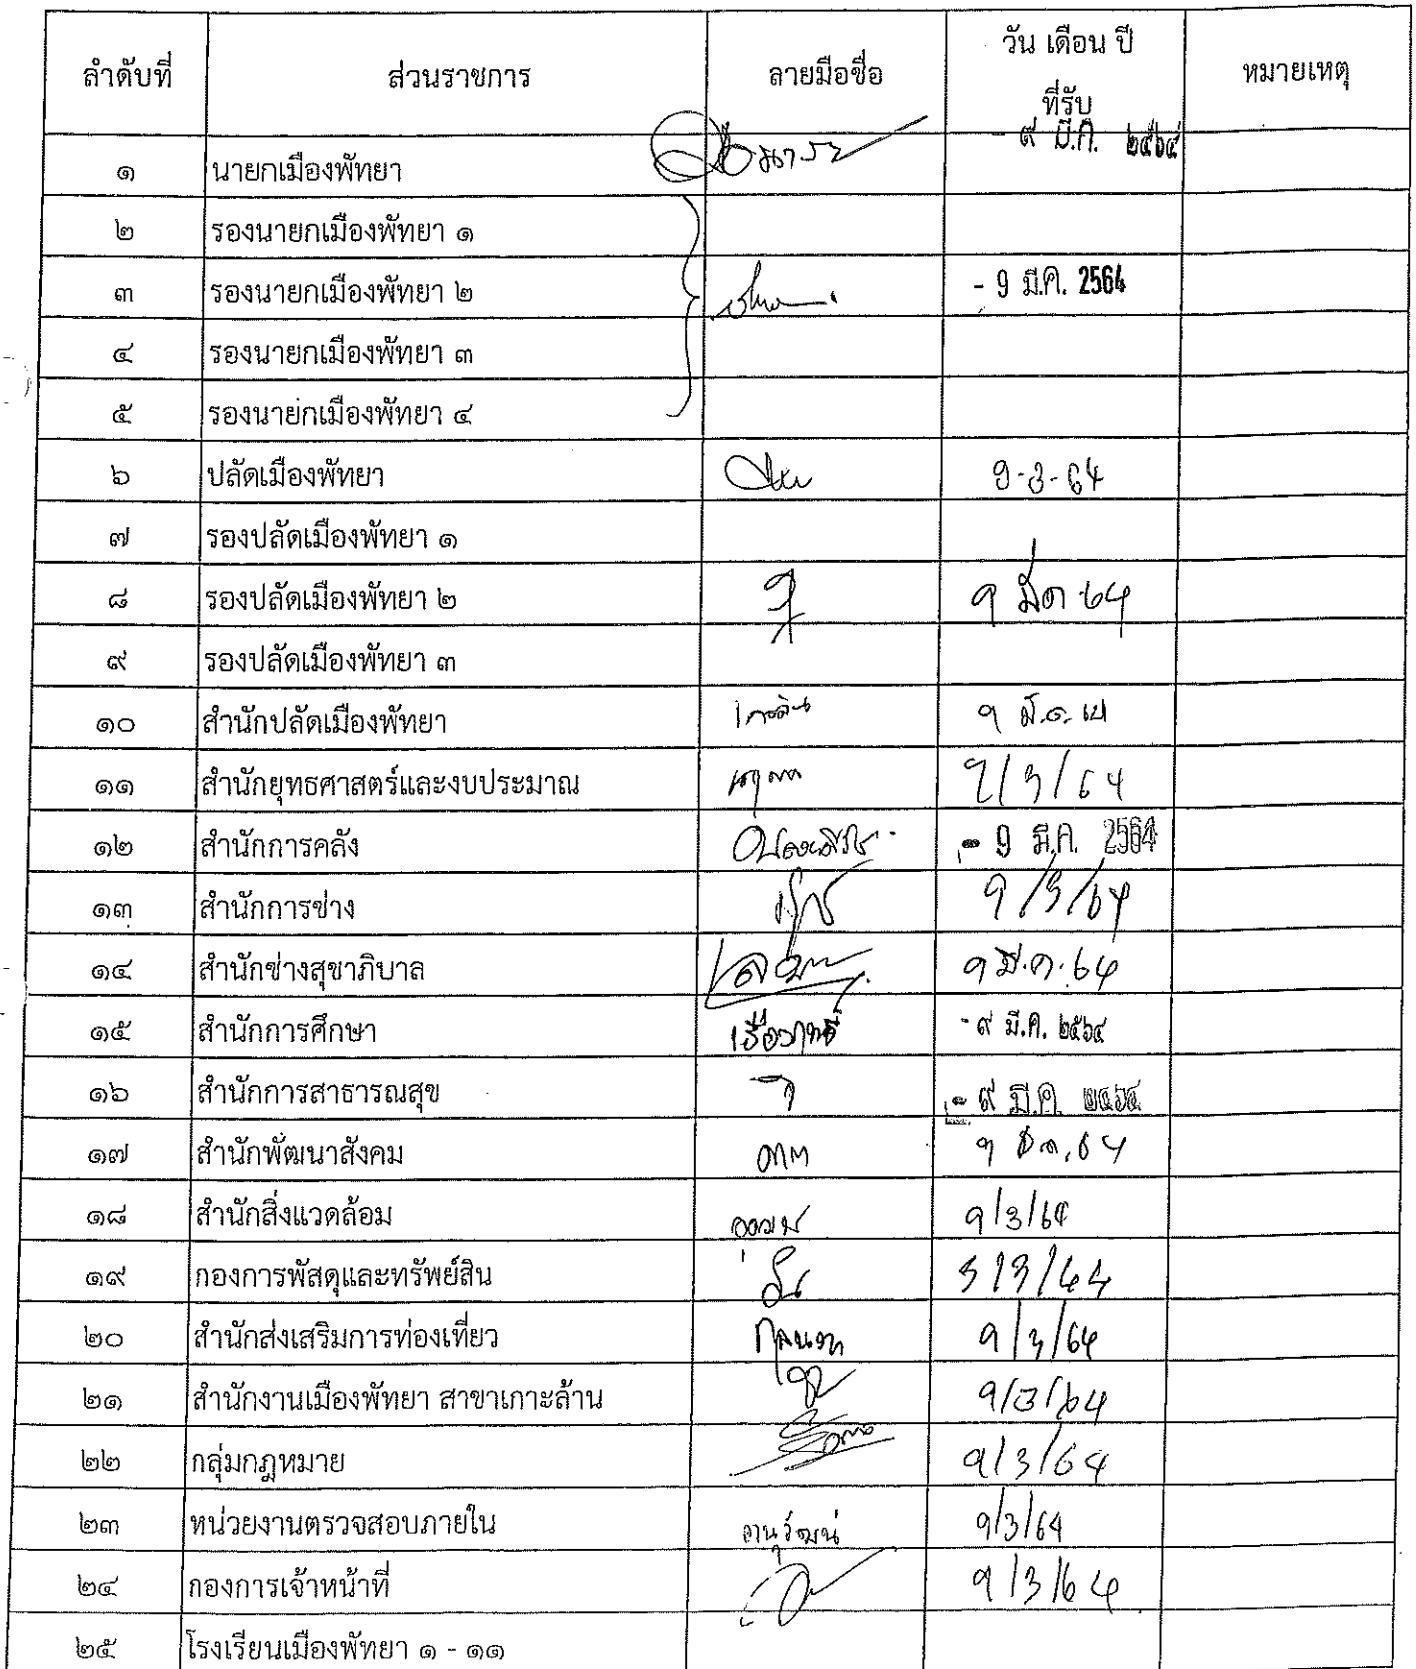 ลำดับที่ ส่วนราชการ ลายมือชื่อ วัน เดือน ปี ที่รับ หมายเหตุ
๑ นายกเมืองพัทยา - ๙ มี.ค. ๒๕๖๔
๒ รองนายกเมืองพัทยา ๑
๓ รองนายกเมืองพัทยา ๒ - 9 มี.ค. 2564
๔ รองนายกเมืองพัทยา ๓
๕ รองนายกเมืองพัทยา ๔
๖ ปลัดเมืองพัทยา 9-3-64
๗ รองปลัดเมืองพัทยา ๑
๘ รองปลัดเมืองพัทยา ๒ 9 มีค 64
๙ รองปลัดเมืองพัทยา ๓
๑๐ สำนักปลัดเมืองพัทยา 9 มี.ค. 64
๑๑ สำนักยุทธศาสตร์และงบประมาณ 9/3/64
๑๒ สำนักการคลัง - 9 มี.ค. 2564
๑๓ สำนักการช่าง 9/3/64
๑๔ สำนักช่างสุขาภิบาล 9 มี.ค. 64
๑๕ สำนักการศึกษา - ๙ มี.ค. ๒๕๖๔
๑๖ สำนักการสาธารณสุข - ๙ มี.ค. ๒๕๖๔
๑๗ สำนักพัฒนาสังคม 9 มีค. 64
๑๘ สำนักสิ่งแวดล้อม 9/3/64
๑๙ กองการพัสดุและทรัพย์สิน /3/64
๒๐ สำนักส่งเสริมการท่องเที่ยว 9/3/64
๒๑ สำนักงานเมืองพัทยา สาขาเกาะล้าน 9/3/64
๒๒ กลุ่มกฎหมาย 9/3/64
๒๓ หน่วยงานตรวจสอบภายใน อนุวัฒน์ 9/3/64
๒๔ กองการเจ้าหน้าที่ 9/3/64
๒๕ โรงเรียนเมืองพัทยา ๑ - ๑๑